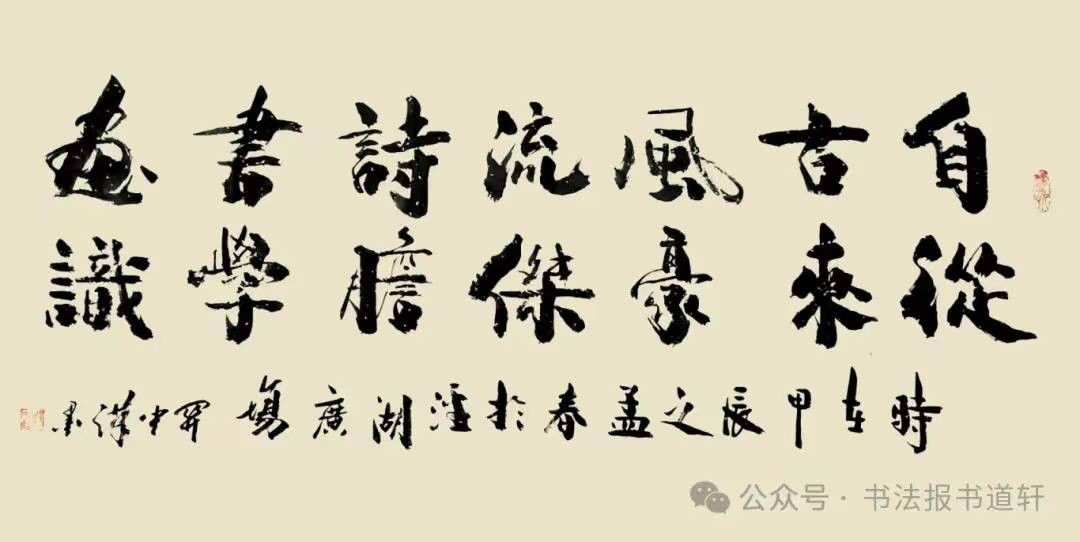 自古風流詩書畫
從來豪傑膽學識
時在甲辰之孟春於湖廣場
公众号 · 书法报书道轩